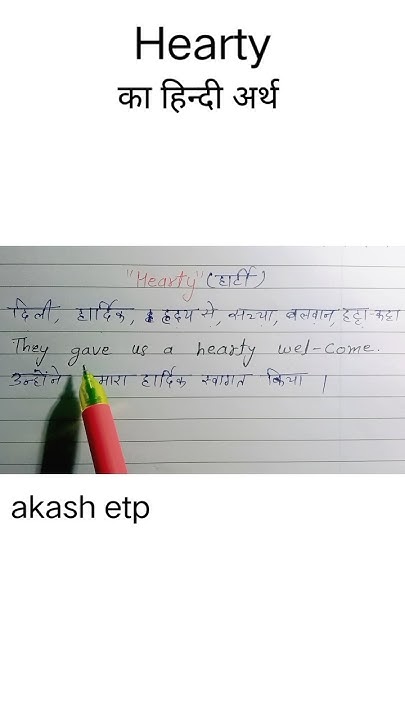 Hearty
का हिन्दी अर्थ
"Hearty" (हार्टी)
दिली, हार्दिक, हृदय से, सच्चा, बलवान, हट्टा-कट्टा
They gave us a hearty wel-come.
उन्होंने हमारा हार्दिक स्वागत किया |
akash etp